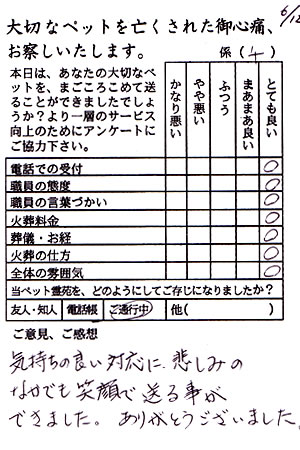 6/12
大切なペットを亡くされた御心痛、
お察しいたします。 係(4)
本日は、あなたの大切なペ
ットを、まごころこめて送
ることができましたでしょ
うか？より一層のサービス
向上のためにアンケートに
ご協力下さい。
かなり悪い
やや悪い
ふつう
まあまあ良い
とても良い
電話での受付
職員の態度
職員の言葉づかい
火葬料金
葬儀・お経
火葬の仕方
全体の雰囲気
当ペット霊苑を、どのようにしてご存じになりましたか？
友人・知人 電話帳 ご通行中 他( )
ご意見、ご感想
気持ちの良い対応に 悲しみの
なかでも笑顔で送る事が
できました。ありがとうございました。